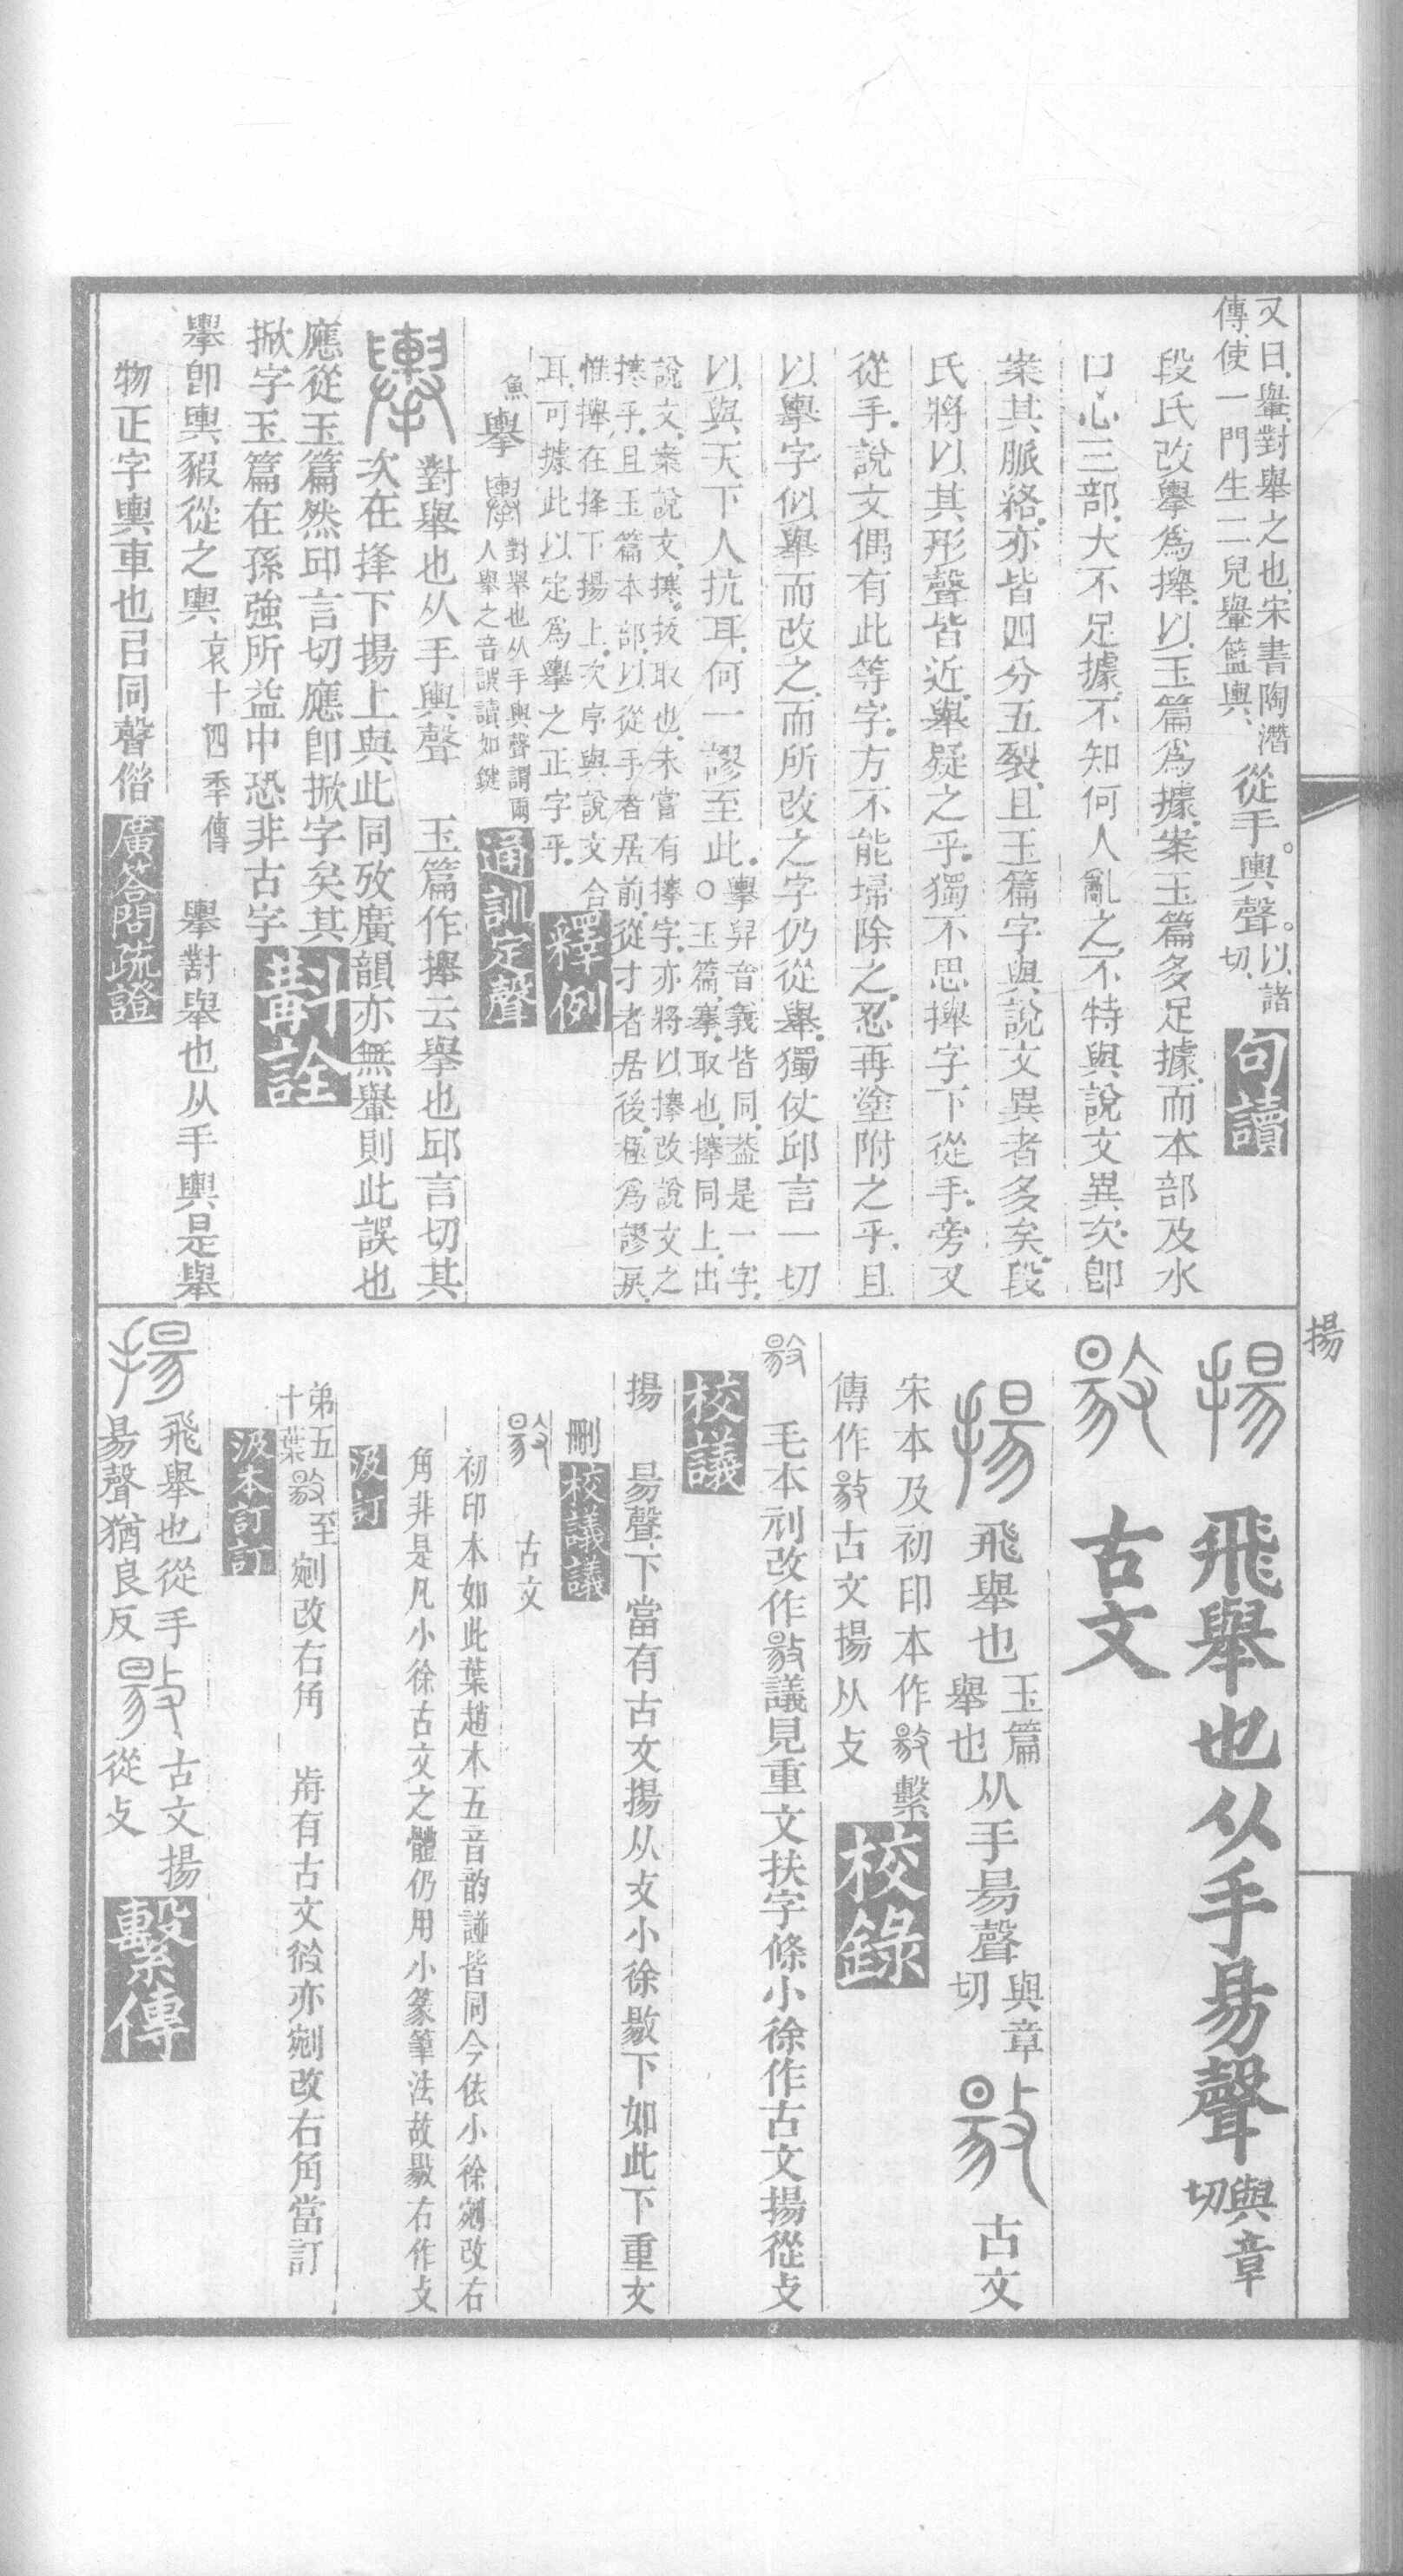 又曰、轝、對舉之也、宋書陶潛
傳、使一門生二兒轝籃輿、
從手。輿聲。
以諸
切、
句讀
段氏改擧爲㩲、以玉篇爲據、案玉篇多足據、而本部及水
口心三部、大不足據、不知何人亂之、不特與說文異次、卽
案其脈絡、亦皆四分五裂、且玉篇字與說文異者多矣、段
氏將以其形聲皆近、舉疑之乎、獨不思字下從手、旁又
從手、說文偶有此等字、方不能埽除之、忍再塗附之乎、且
以擧字似舉而改之、而所改之字仍從舉、獨仗邱言一切
以與天下人抗耳、何一謬至此、〇
擧舁音義皆同、蓋是一字、
玉篇、搴、取也、㩃同上、出
說文、案說文、攐、拔取也、未嘗有字、亦將以改說文之
攐乎、且玉篇本部、以從手者居前、從才者居後、極爲謬戾、
惟在捀下揚上、次序與說文合
耳、可據此以定爲擧之正字乎、
釋例
魚
擧
對舉也从手輿聲謂兩
人舉之音誤讀如鍵
通訓定聲
對舉也从手輿聲 玉篇作云擧也邱言切其
次在捀下揚上與此同攷廣韻亦無轝則此誤也
應從玉篇然邱言切應卽掀字矣其
掀字玉篇在孫強所益中恐非古字
斠詮
擧卽輿叚從之輿
哀十四季傳
擧對舉也从手輿是舉
物正字輿車也㠯同聲偕
廣答問疏證
揚
揚 飛舉也从手昜聲
與章
切
敭 古文
揚 飛舉也
玉篇
舉也
从手昜聲
與章
切
敭 古文
宋本及初印本作敭繫
傳作敭古文揚从攴
校錄
敭 毛本刓改作敭議見重文扶字條小徐作古文揚從攴
校議
揚 昜聲下當有古文揚从攴小徐敭下如此下重文
刪
校議議
敭 古文
初印本如此葉趙本五音韵譜皆同今依小徐剜改右
角非是凡小徐古文之體仍用小篆筆法故敭右作攴
汲訂
弟五
十葉
敭至
剜改右角 歬有古文亦剜改右角當訂
汲本訂訂
揚 飛舉也從手
昜聲猶良反
敭 古文揚
從攴
繫傳